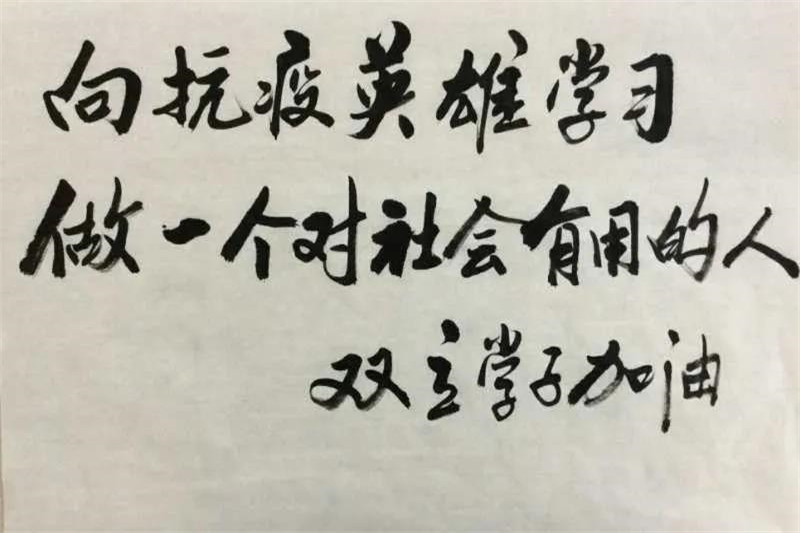 向抗疫英雄学习
做一个对社会有用的人
双立学子加油